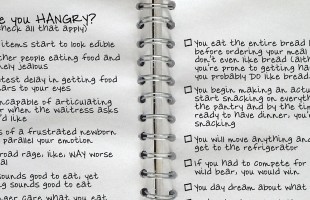 re you HANGRY?
check all that apply)
items start to look edible
ther people eating food and
nely jealous
test delay in getting food
ears to your eyes
ncapable of articulating
r when the waitress asks
u'd like
s of a frustrated newborn
parallel your emotion
road rage, like, WAY worse
al
sounds good to eat, yet
ng sounds good to eat
nger care what you eat
You eat the entire bread
before ordering your meal
don't even like bread (alth
you're prone to getting ha
you probably DO like bread
You begin making an actu
start snacking on everyth
the pantry and by the tim
ready to have dinner, you'r
snacking
You will move anything an
get to the refrigerator
If you had to compete for
wild bear, you would win
You day dream about what